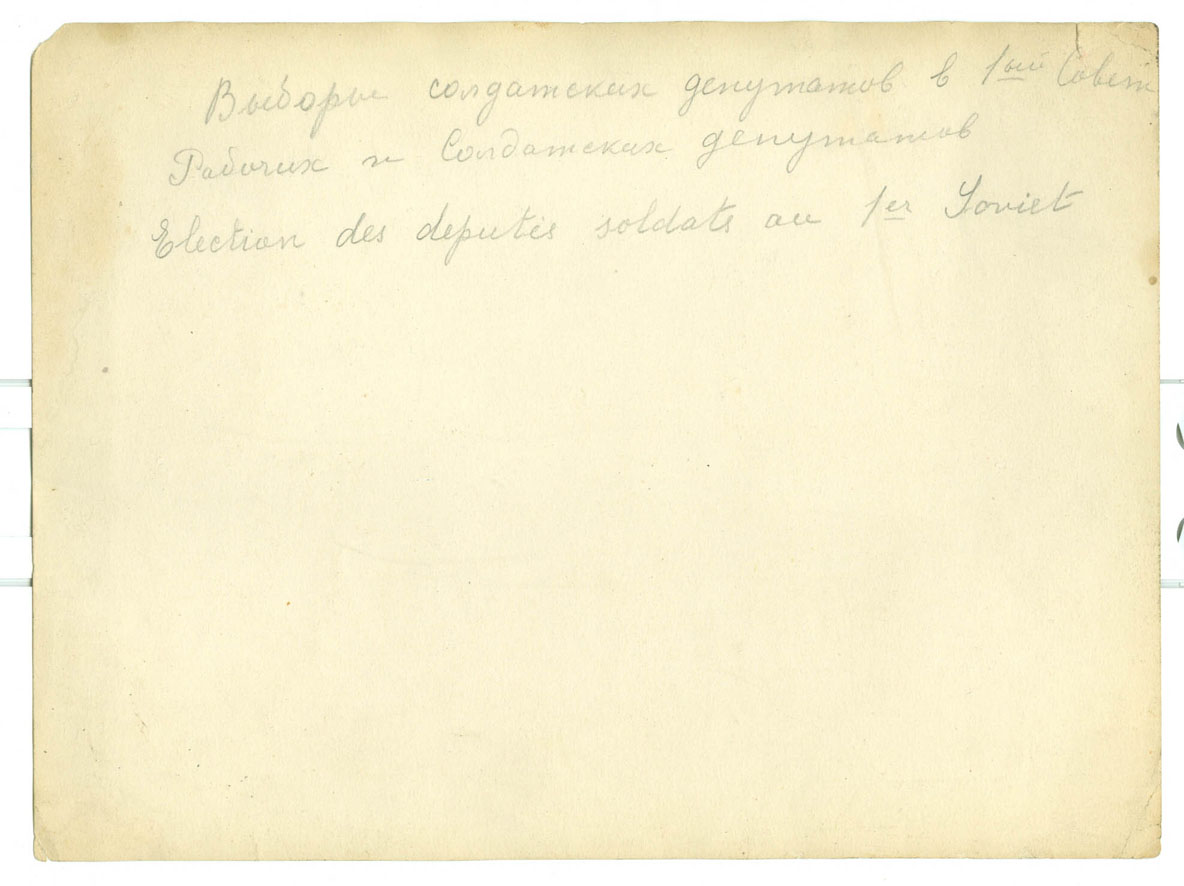 Выборы солдатских депутатов в 1ый Совет
Рабочих и Солдатских депутатов
Election des deputés soldats au 1er Soviet